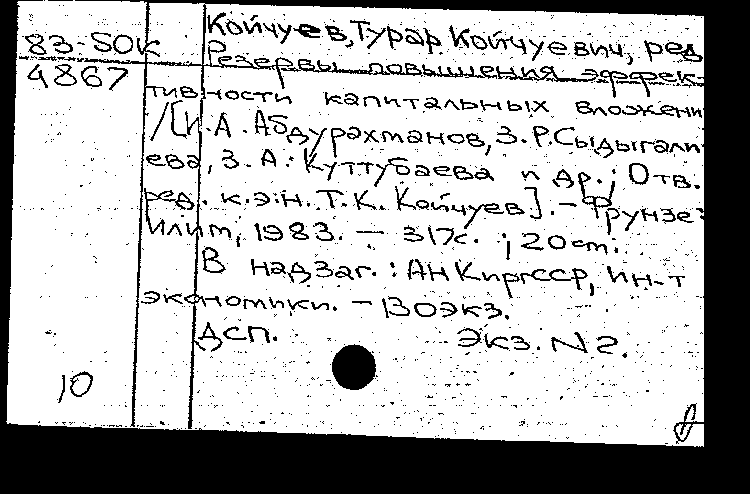 Койчуев, Турар Койчуевич, ред
83-SOK
Резервы повышения эффек-
4867
тивности капитальных вложени
/[И.А. Абдурахманов, З.Р. Сыдыгали
ева, З.А. Куттубаева и др.; Отв.
ред. к.э.н. Т.К. Койчуев]. - Фрунзе:
Илим, 1983. - 317с. ; 20 cm.
В надзаг.: АН КиргССР, Ин-т
экономики. - 130экз.
ДСП. Экз. N2.
10